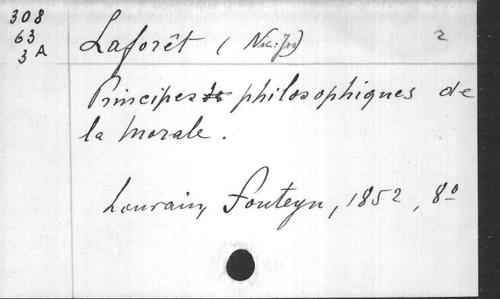 308
63
3 A
Laforêt (Nic: Jos) 2
Principes philosophiques de
la Morale.
Louvain, Fonteyn, 1852, 8º